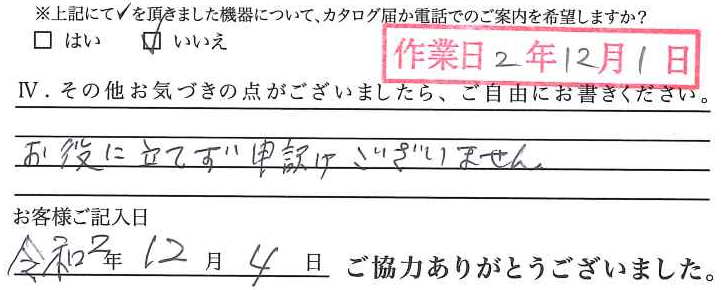 ※上記にて✓を頂きました機器について、カタログ届か電話でのご案内を希望しますか?
□ はい ☑ いいえ
作業日 2年12月1日
Ⅳ．その他お気づきの点がございましたら、ご自由にお書きください。
お役に立てず申訳けございません。
お客様ご記入日
令和2年 12月 4日 ご協力ありがとうございました。